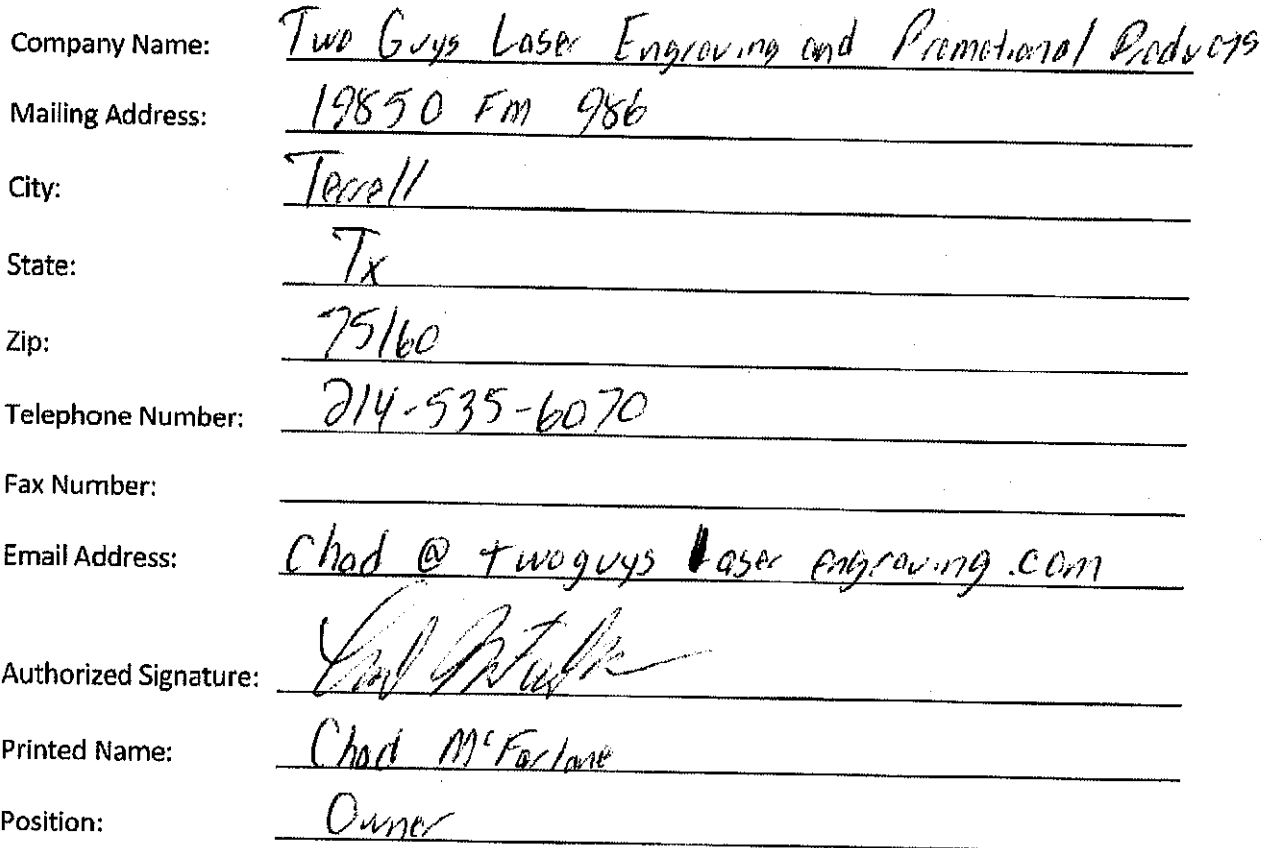 Company Name: Two Guys Laser Engraving and Promotional Products
Mailing Address: 19850 Fm 986
City: Terrell
State: Tx
Zip: 75160
Telephone Number: 214-535-6070
Fax Number:
Email Address: Chad @ twoguys Laser engraving .com
Authorized Signature:
Printed Name: Chad McFarlane
Position: Owner